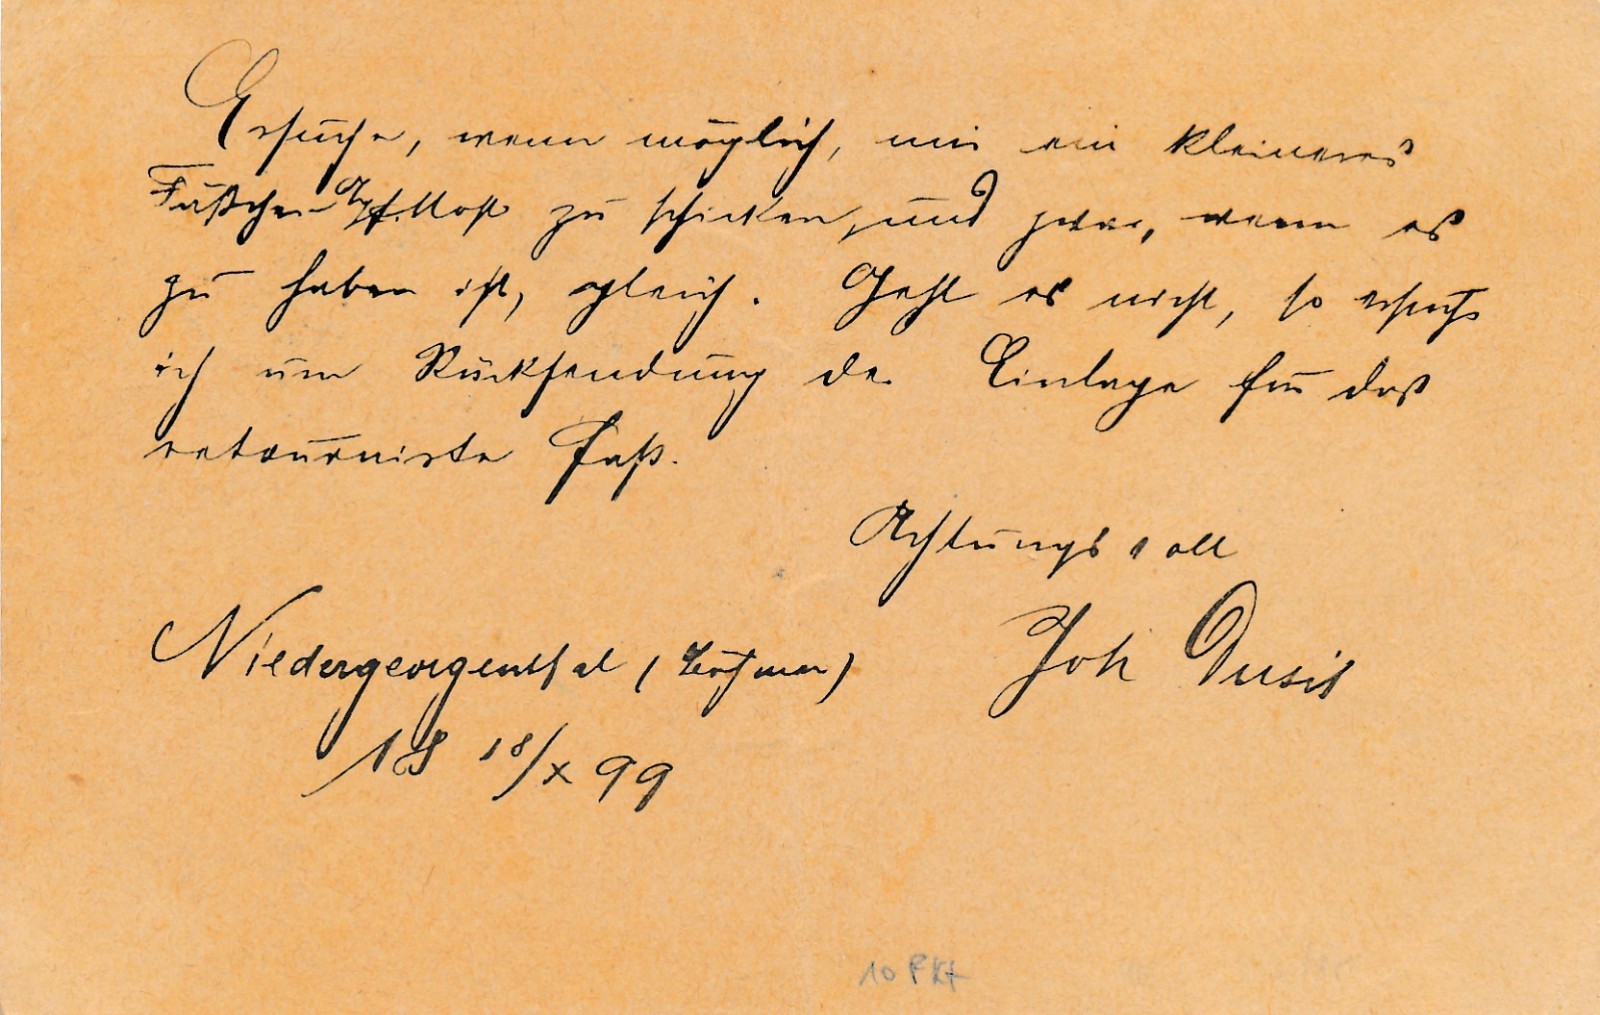 Ersuche, wenn möglich, mir ein kleineres
Fäßchen Apf. Most zu schicken, und zwar, wenn es
zu haben ist, gleich. Geht es nicht, so ersuche
ich um Rücksendung der Einlage für das
retournirte Faß.
Achtungsvoll
Niedergeorgenthal (Böhmen) Joh
18/X 99
10